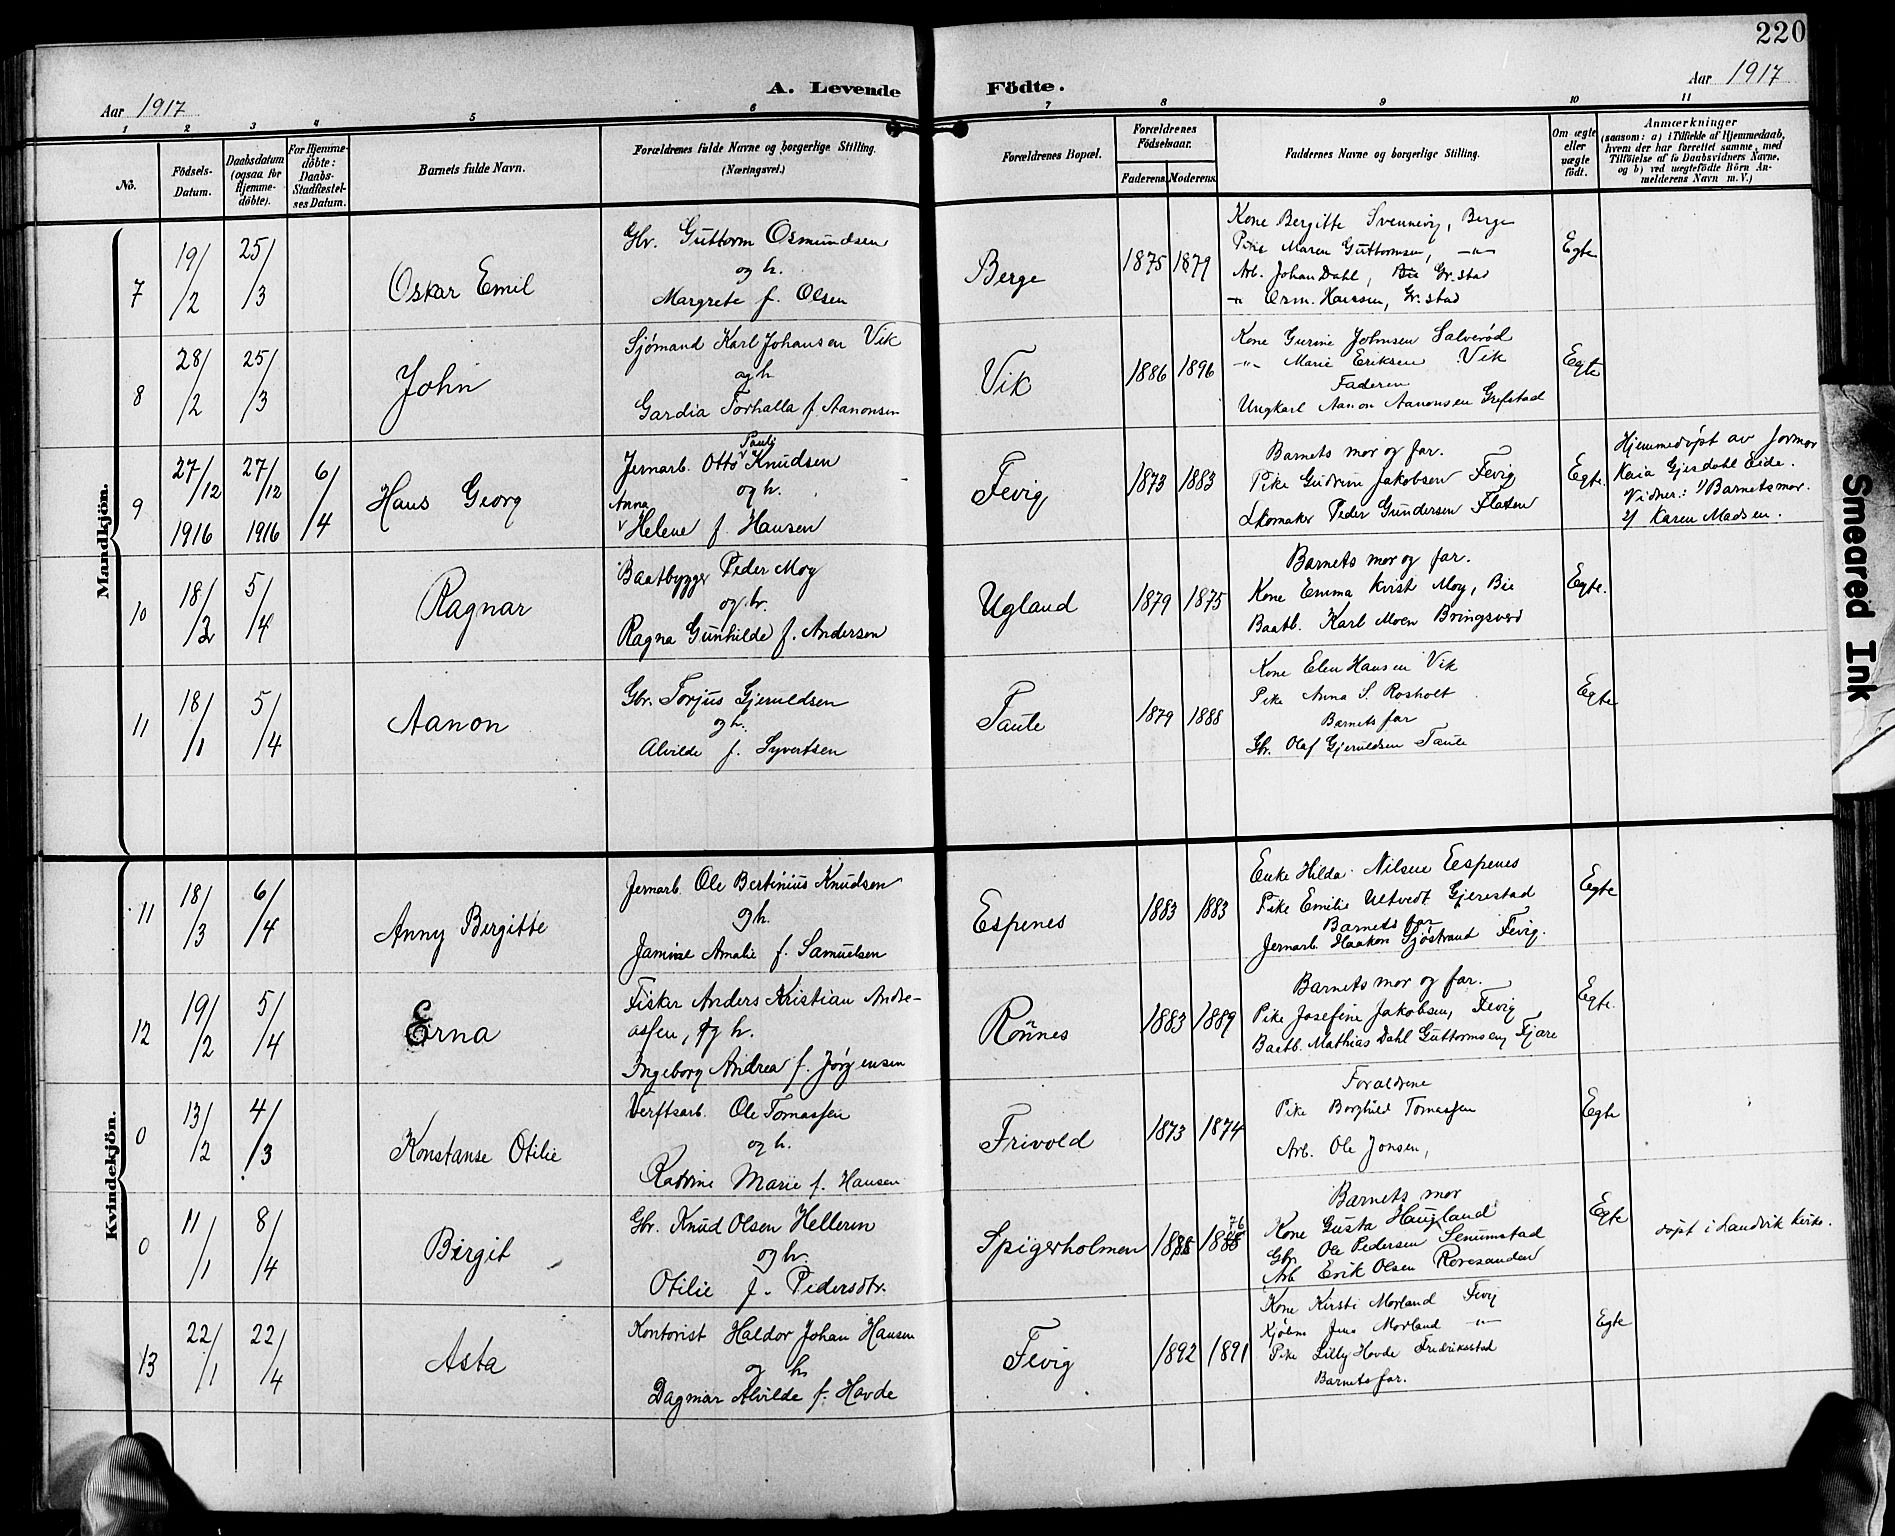 220
Aar 1917
A. Levende Födte.
Aar 1917
1 2 3 4 5 6 7 8 9 10 11
No.
Födsels-
Datum.
Daabsdatum
(ogsaa for
Hjemme-
døbte).
For Hjemme-
döbte:
Daabs-
Stadfæstel-
ses Datum.
Barnets fulde Navn.
Forældrenes fulde Navne og borgerlige Stilling.
(Næringsvei.)
Forældrenes Bopæl.
Forældrenes
Födselsaar.
Faderens. Moderens.
Faddernes Navne og borgerlige Stilling.
Om ægte
eller
uægte
født.
Anmærkninger
(saasom: a) i Tilfælde af Hjemmedaab,
hvem der har forrettet samme, med
Tilföielse af to Daabsvidners Navne,
og b) ved uægtefödte Börn An-
melderens Navn m. V.)
Mandkjön.
7
19/2
25/3
Oskar Emil
Gbr. Guttorm Osmundsen
og h.
Margrete f. Olsen
Berge
1875 1879
Kone Bergitte Svennevig, Berge
Pike Maren Guttormsen, -"-
Arb. Johan Dahl, Gr.stad
-"- Osm. Hansen, Gr.stad
Egte
8
28/2
25/3
John
Sjömand Karl Johansen Vik
og h
Gardia Torhalla f. Aanonsen
Vik
1886 1896
Kone Gurine Johnsen Salveröd
-"- Marie Eriksen Vik
Faderen
Ungkarl Aanon Aanonsen Grefstad
Egte
9
27/12
1916
27/12
1916
6/4
Hans Georg
Pauli
Jernarb. Otto Knudsen
og h.
Anna
Helene f Hansen
Fevig
1873 1883
Barnets mor og far.
Pike Gudrun Jakobsen Fevig
Skomaker Peder Gundersen Flaten
Egte.
Hjemmedöpt av formor
Kaia Gjersdahl Eide.
Vidner: 1/ Barnets mor.
2/ Karen Madsen.
10
18/2
5/4
Ragnar
Baatbygger Peder Moy
og h.
Ragna Gunhilde f. Andersen
Ugland
1879 1875
Barnets mor og far.
Kone Emma Kvist Moy, Bie
Baatb. Karl Moen Bringsverd
Egte.
11
18/1
5/4
Aanon
Gbr. Torjus Gjeruldsen
og h.
Alvilde f. Syvertsen
Taule
1879 1888
Kone Elen Hansen Vik
Pike Anna S. Rosholt
Barnets far
Gbr. Olaf Gjeruldsen Taule
Egte
Kvindekjön.
11
18/3
6/4
Anny Birgitte
Jernarb. Ole Bertinius Knudsen
og h.
Jamine Amalie f. Samuelsen
Espenes
1883 1883
Enke Hilda Nilsen Espenes
Pike Emilie Ultvedt Gjerestad
Barnets far
Jernarb. Haakon Sjöstrand Fevig.
Egte
12
19/2
5/4
Erna
Fisker Anders Kristian Andre-
assen, og h.
Ingeborg Andrea f. Jörgensen
Rönnes
1883 1889
Barnets mor og far.
Pike Josefine Jakobsen, Fevig
Baatb. Mathias Dahl Guttormsen, Fjære
Egte.
0
13/2
4/3
Konstanse Otilie
Verftsarb. Ole Tomassen
og h.
Katrine Marie f. Hansen
Frivold
1873 1874
Foraldrene
Pike Borghild Tomassen
Arb. Ole Jonsen,
Egte
0
11/1
8/4
Birgit
Gbr. Knud Olsen Helleren
og h.
Otilie f. Pedersdtr.
Spigerholmen
Barnets mor
Kone Gusta Haugland
Gbr. Ole Pedersen Senumstad
Arb Erik Olsen Roresanden
Egte
döpt i Landvik kirke.
13
22/1
22/4
Asta
Kontorist Haldor Johan Hansen
og h
Dagmar Alvilde f. Hovde
Fevig
1892 1891
Kone Kirsti Morland Fevig
Kjöbm Jens Morland -"-
Pike Lilly Hovde Fredriksstad
Barnets far.
Egte
Smeared Ink